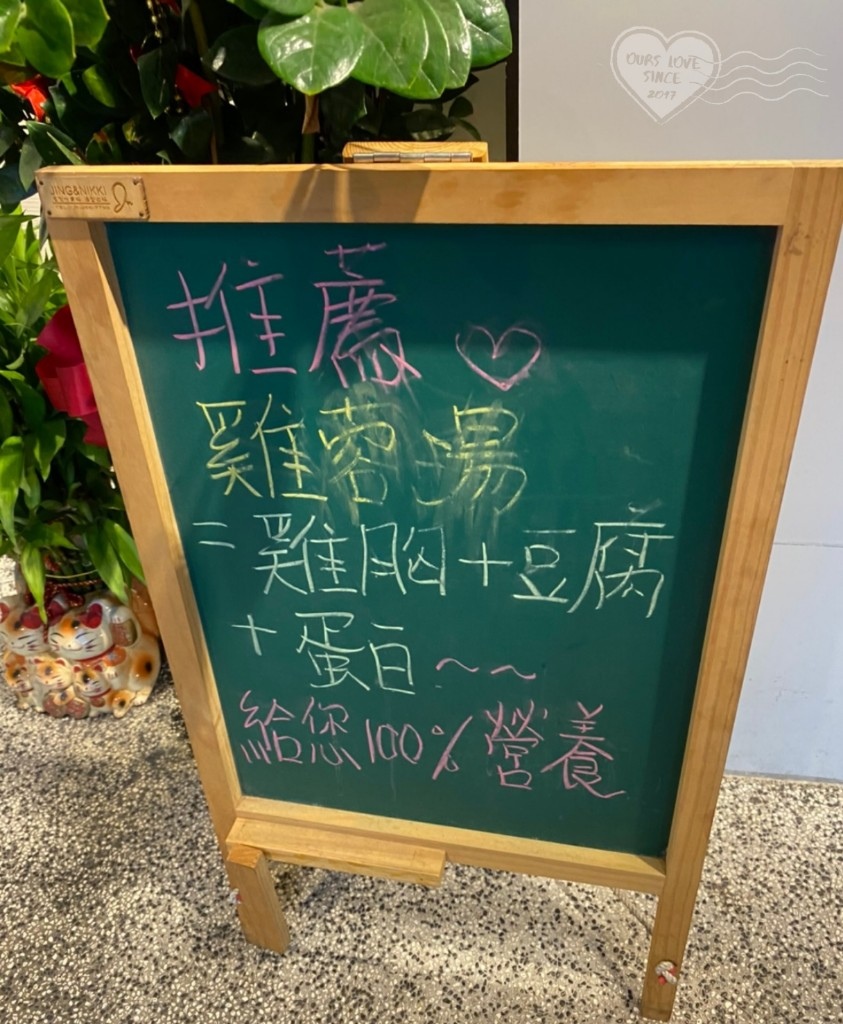 OURS LOVE
SINCE
2017
JING&NIKKI
推薦♡
雞蓉湯
=雞胸+豆腐
+蛋白~~
給您100%營養